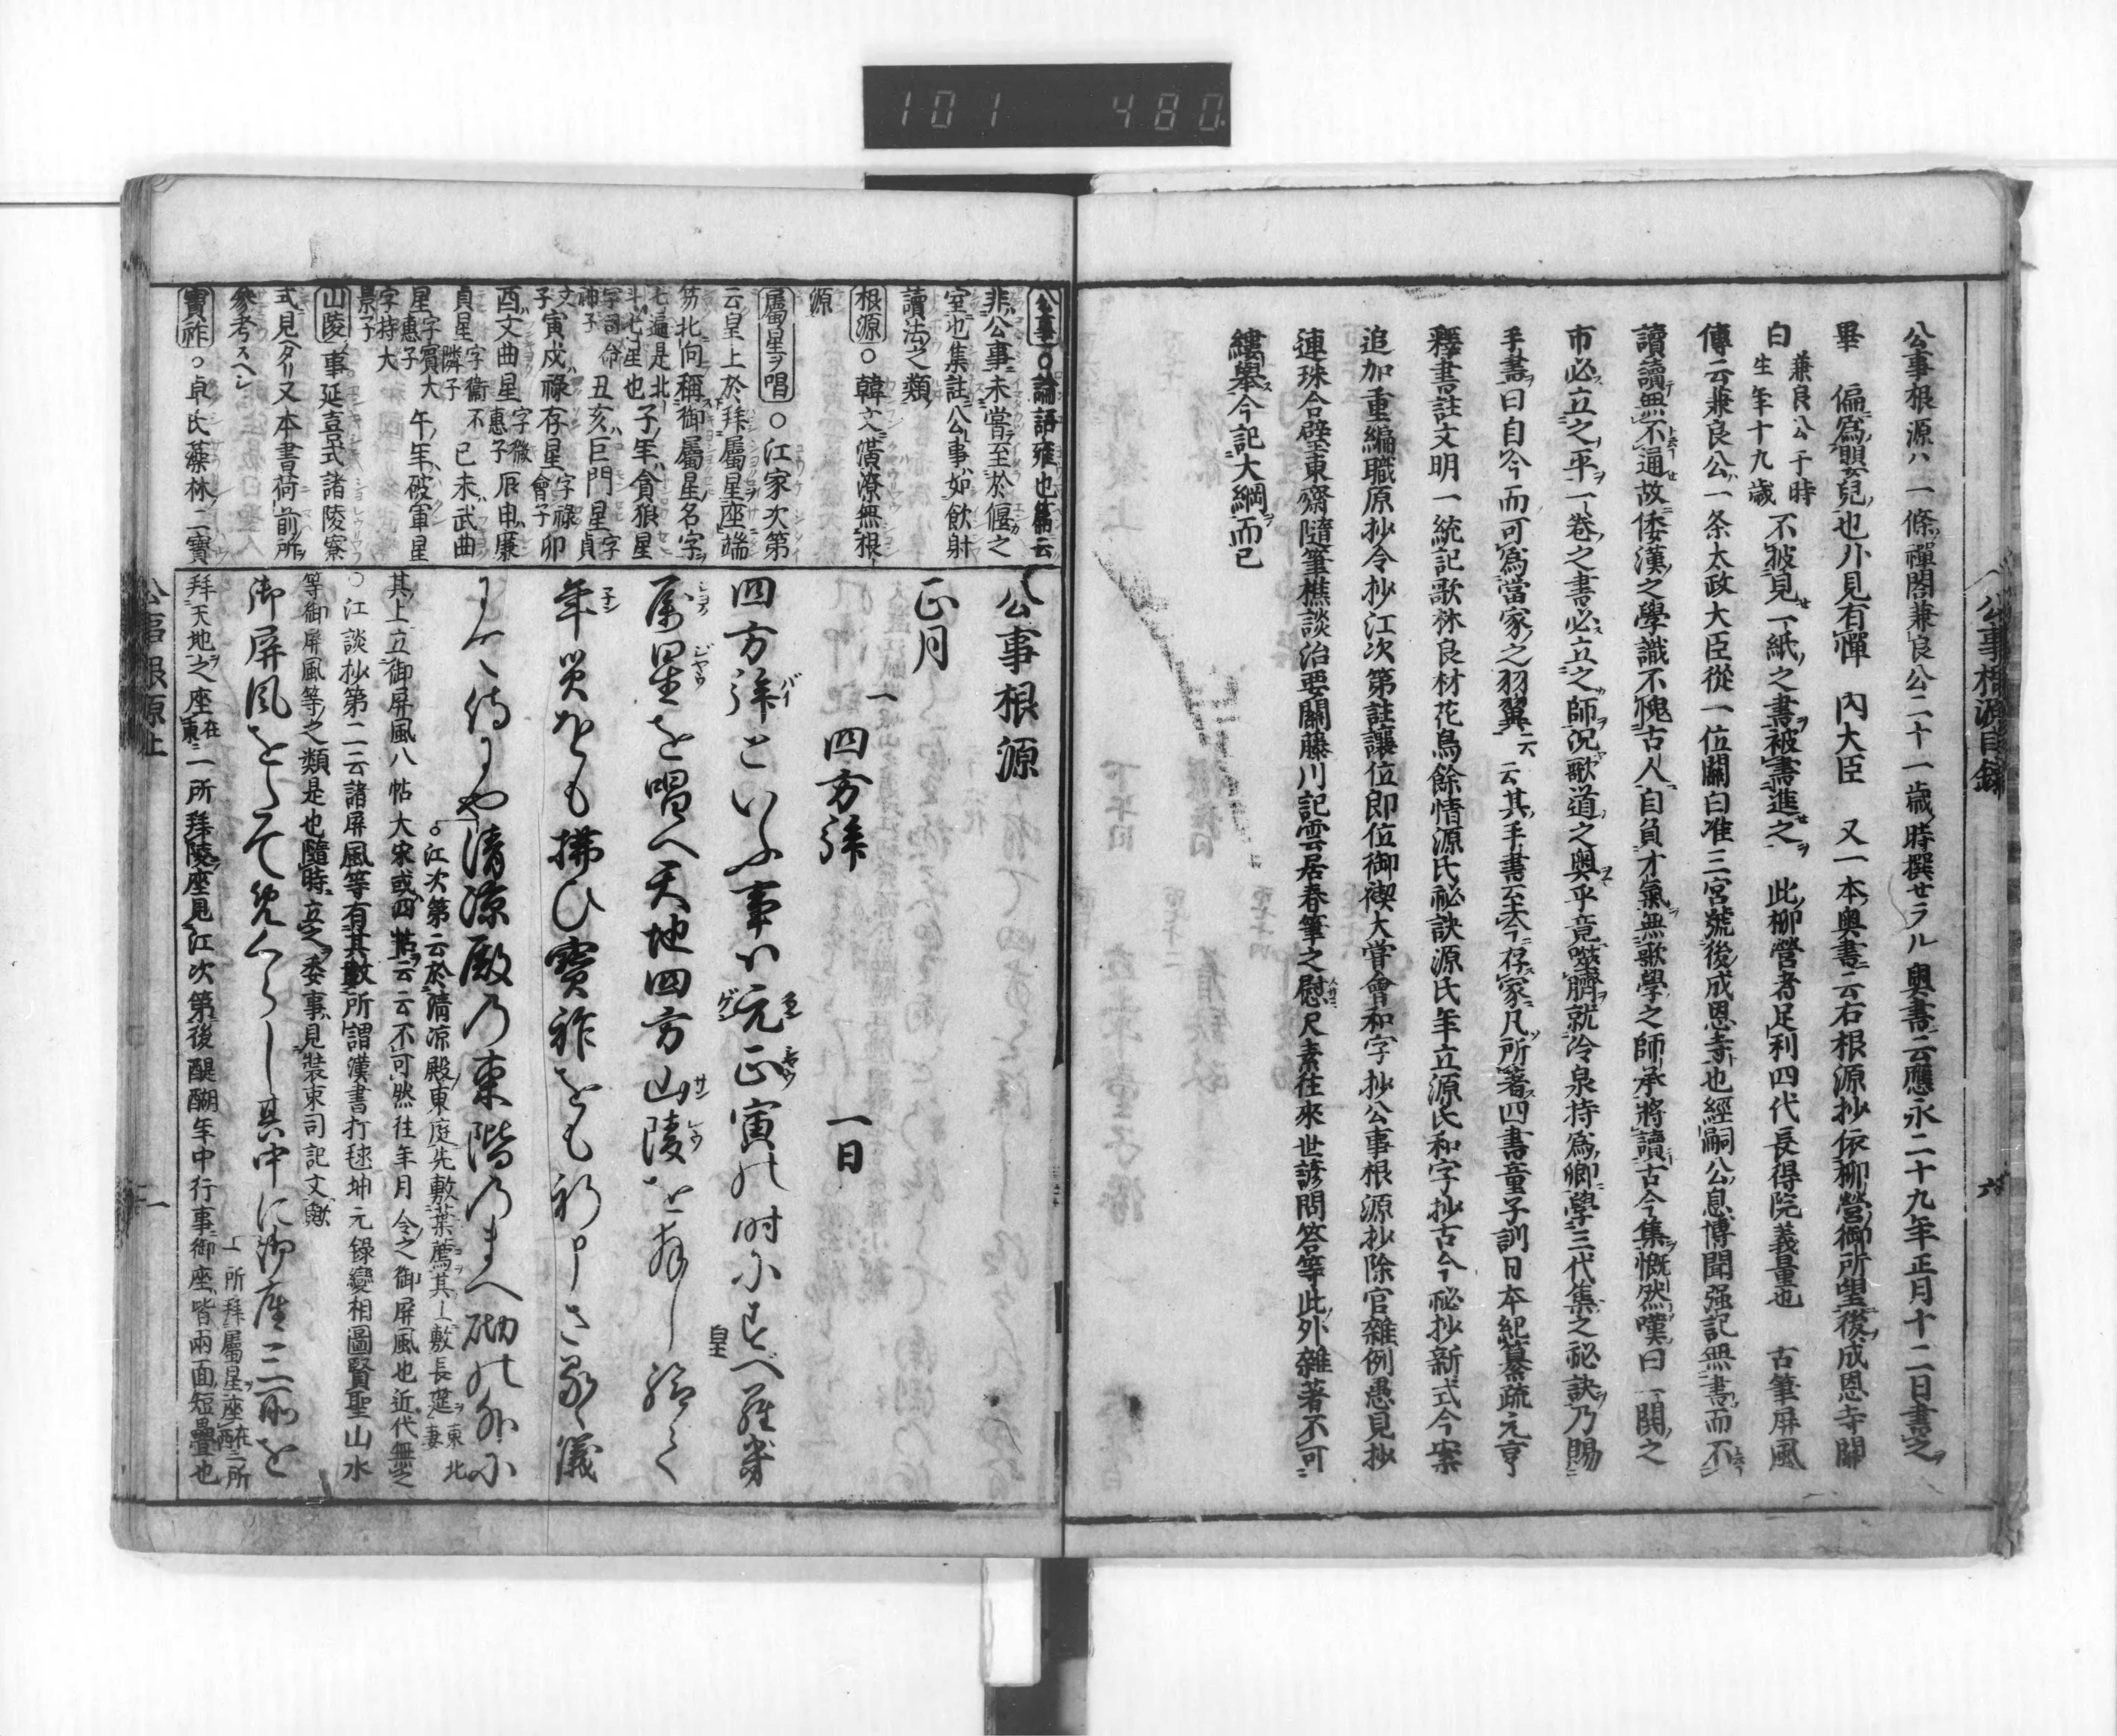 101 480
公事根源ハ一條禪閤兼良公二十一歳時撰せラル奥書云應永二十九年正月十二日書之
畢 偏爲嬰兒也外見有憚 内大臣 又一本奥書云右根源抄依柳營御所望後成恩寺關
白 兼良公于時生年十九歳 不披見一紙之書被書進之 此柳營者足利四代長得院義量也 古筆屏風
傳云兼良公一条太政大臣從一位關白准三宮號後成恩寺也經嗣公息博聞强記無書而不
讀讀無不通故倭漢之學識不愧古人自負才氣無歌學之師承將讀古今集慨然嘆曰一閧之
市必立之平一卷之書必立之師況歌道之奥乎竟噬臍就冷泉持爲卿學三代集之祕訣乃賜
手書曰自今而可爲當家之羽翼云云其手書至今存家凡所著四書童子訓日本紀纂疏元亨
釋書註文明一統記歌林良材花鳥餘情源氏祕訣源氏年立源氏和字抄古今祕抄新式今案
追加重編職原抄令抄江次第註讓位即位御禊大甞會和字抄公事根源抄除官雜例愚見抄
連珠合璧東齋隨筆樵談治要關藤川記雲居春筆之慰尺素往來世諺問答等此外雜著不可
縷擧今記大綱而已
公事根源目録 六
公事○論語雍也篇云
非公事未嘗至於偃之
室也集註公事如飲射
讀法之類
根源○韓文潢潦無根
源
屬星ヲ唱○江家次第
云皇上於拜屬星座端
笏北向稱御屬星名字
七遍是北斗七星也 子年貪狼星
字司命神子 丑亥巨門星字貞
文子 寅戌祿存星字祿會子 卯
酉文曲星字微惠子 辰申廉
貞星字衞不隣子 巳未武曲
星字賓大惠子 午年破軍星
字持大景子
山陵ノ事延喜式諸陵寮
式見ヘタリ又本書荷前所
參考スヘシ
寶祚○卓氏藻林二寶
公事根源
正月
一 四方拜 一日
四方拜といふ事ハ元正寅の時にすべ羅き
皇
属星を唱へ天地四方山陵を拜し給て
年災をも拂ひ寶祚をも祈申さるゝ儀
にて侍にや清涼殿の東階のまへ砌の外に
○江次第云於清凉殿東庭先敷葉薦其上敷長莚東北妻
其上立御屏風八帖大宋或四帖云云不可然往年月令之御屏風也近代無之
○江談抄第二云諸屏風等有其數所謂漢書打毬坤元録變相圖賢聖山水
等御屏風等之類是也隨時立之委事見裝束司記文歟
御屏風をたてめくらし其中に御座三所を
上所拜屬星座在西二所
拜天地之座在東三所拜陵座見江次第後醍醐年中行事御座皆兩面短疊也
公事根源上 一